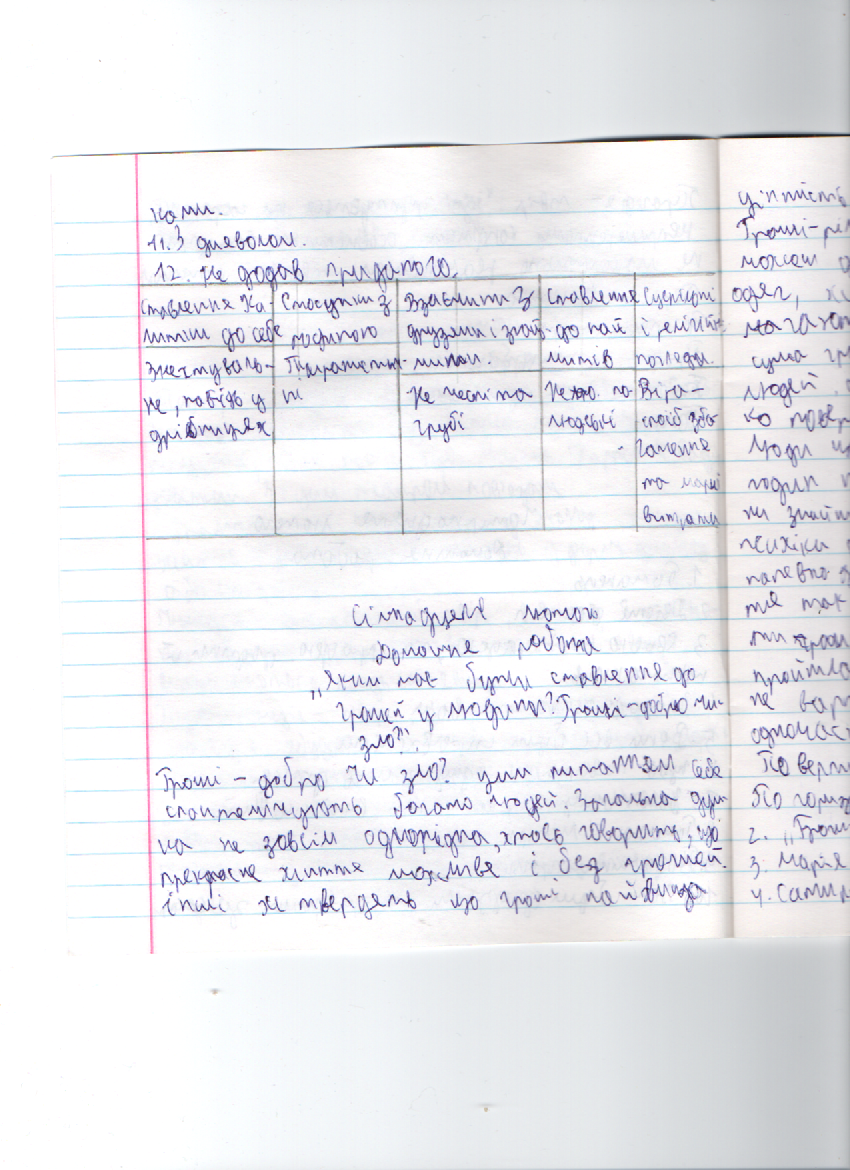 ками.
11. З дияволом.
12. Не додав приданого.
Ставлення Ка-
литки до себе
Зневажуваль-
не, навіть у
дрібницях
Стосунки з
родиною
Прагматич-
ні
Взаємини З
друзями і знай-
мими.
Не чесні та
грубі
Ставлення
до най
митів
Не по-
людські
Суспільні
і релігійні
погляди.
Віра –
спосіб зба-
гачення
та марні
витрати
Сімнадцяте лютого
Домашня робота
„Яким має бути ставлення до
грошей у людини? Гроші – добро чи
зло?".
Гроші – добро чи зло? цим питанням себе
багато людей. Загальна дум
ка не зовсім однорідна, хтось говорить, що
прекрасне життя можливе і без грошей.
інші ж твердять що гроші найвища
цінність
Гроші-
можем
одяг,
сума
людей
ко
люди
годин
психіка
напевно
те так
ти
не вар
одночас
По верт
По гориз
2. „Гроші
3. Марія
4.